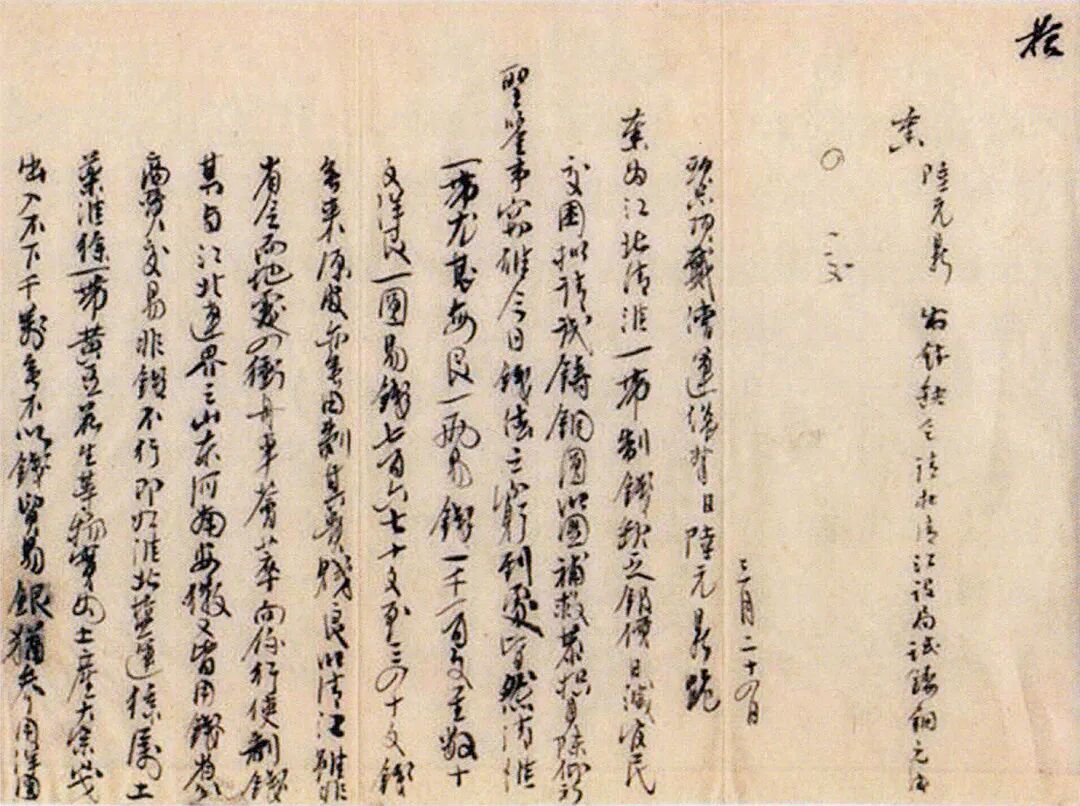 奏
陸元鼎 為錢缺乞請於清江設局試鑄銅元由
三月二十四日
頭品頂戴漕運總督臣陸元鼎跪
奏為江北清淮一帶制錢缺乏銀價日減官民
交困擬請試鑄銅圓以圖補救恭摺具陳仰祈
聖鑒事竊維今日錢法之窮到處皆然清淮
一帶尤甚每銀一兩易錢一千一百文至數十
文洋銀一圓易錢七百六七十文至三四十文錢
良以清江雖非
省會而地處四衝舟車薈萃向係行使制錢
其與江北連界之山東河南安徽又皆用錢省分
商賈交易非錢不行即如淮北鹽運係屬土
藥淮徐一帶黃豆花生等物實為土產大宗歲
出入不下千萬無不以錢貿易銀猶參用洋圓